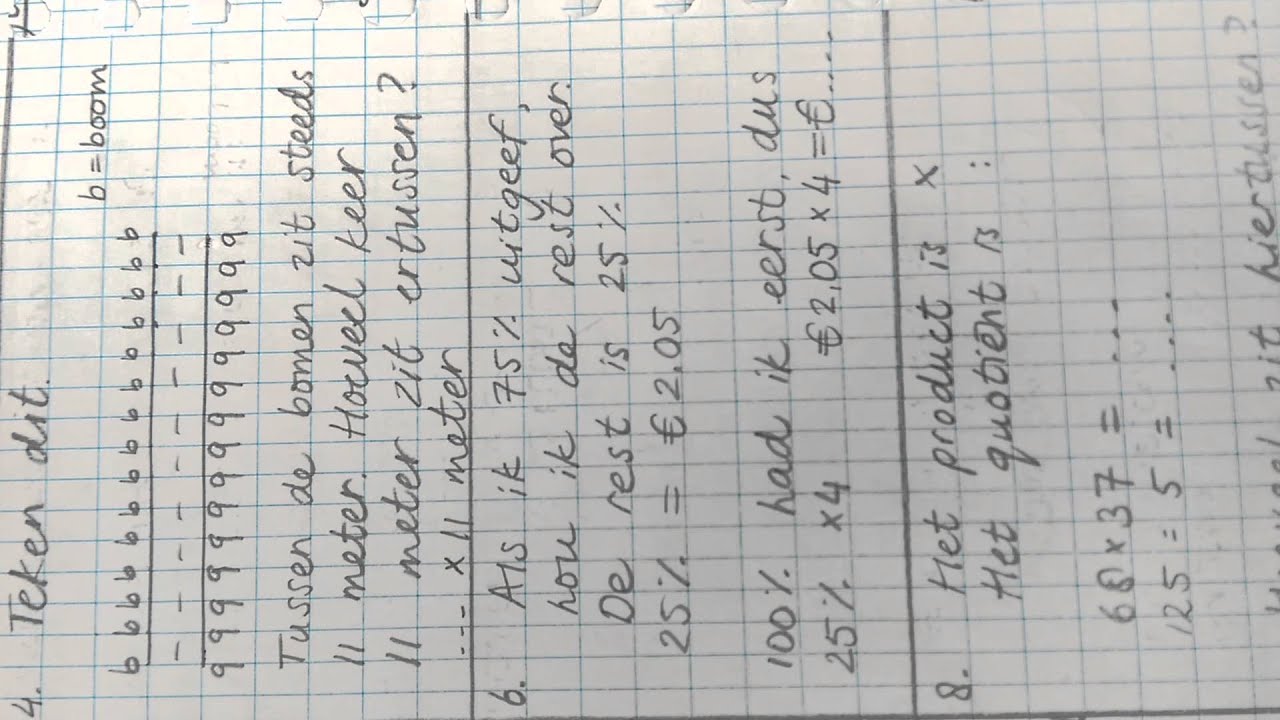 4. Teken dit.
b = boom
b b b b b b b b b b b b b b
- - - - - - - - - - -
9 9 9 9 9 9 9 9 9 9 9 9 9 9
Tussen de bomen zit steeds
11 meter. Hoeveel keer
11 meter zit ertussen?
.... x 11 meter
6. Als ik 75% uitgeef,
hou ik de rest over.
De rest is 25%
25% = € 2.05
100% had ik eerst, dus
25% x4 € 2,05 x 4 = € ....
8. Het product is x
Het quotiënt is :
68 x 37 = ....
125 = 5 = ....
zit hiertussen?